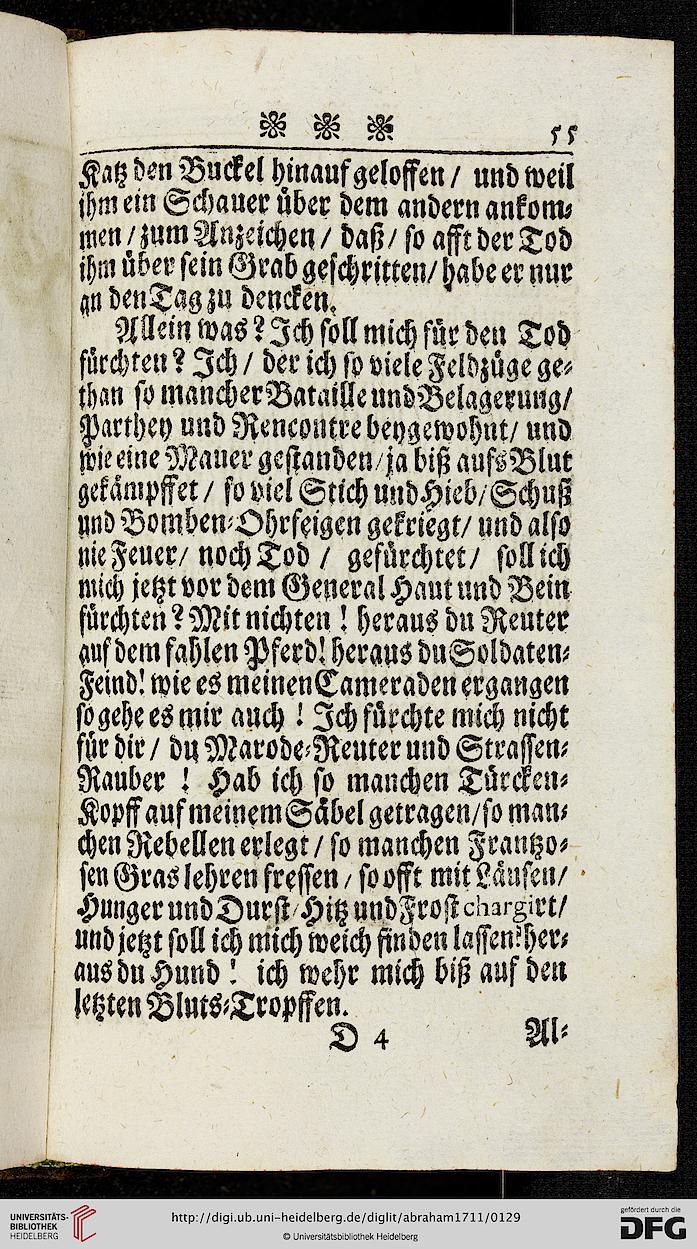 ❀ ❀ ❀ 55
Katz den Buckel hinauf geloffen / und weil
ihm ein Schauer über dem andern ankom-
men / zum Anzeichen / daß / so afft der Tod
ihm über sein Grab geschritten / habe er nur
an den Tag zu dencken.
Allein was? Ich soll mich für den Tod
fürchten? Ich / der ich so viele Feldzüge ge-
than so mancher Bataille und Belagerung /
Parthey und Rencontre beygewohnt / und
wie eine Mauer gestanden / ja biß aufs Blut
gekämpffet / so viel Stich und Hieb / Schuß
und Bomben-Ohrfeigen gekriegt / und also
nie Feuer / noch Tod / gefürchtet / soll ich
mich jetzt vor dem General Haut und Bein
fürchten? Mit nichten! heraus du Reuter
auf dem fahlen Pferd! heraus du Soldaten-
Feind! wie es meinen Cameraden ergangen
so gehe es mir auch! Ich fürchte mich nicht
für dir / du Marode-Reuter und Strassen-
Rauber! Hab ich so manchen Türcken-
Kopff auf meinem Säbel getragen / so man-
chen Rebellen erlegt / so manchen Frantzo-
sen Gras lehren fressen / so offt mit Läusen /
Hunger und Durst / Hitz und Frost chargirt /
und jetzt soll ich mich weich finden lassen? her-
aus du Hund! ich wehr mich biß auf den
letzten Bluts-Tropffen.
D 4 Al-
UNIVERSITÄTS-
BIBLIOTHEK
HEIDELBERG
http://digi.ub.uni-heidelberg.de/diglit/abraham1711/0129
© Universitätsbibliothek Heidelberg
gefördert durch die
DFG